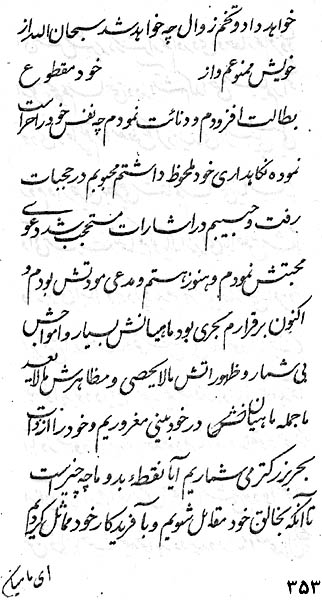 خواهد داد و تخم زوال چه خواهد شد سبحان الله از
خویش ممنوعم و از خود مقطوع
بطالت افزودم و دنائت نمودم چه نفس خود را حراست
نموده نگاهداری خود ملحوظ داشتم محبوبم در حجبات
رفت و حبیبم در اشارات محتجب شد دعوی
محبتش نمودم و هنوز هستم و مدعی مودتش بودم و
اکنون برقرارم بحری بود ماهیانش بسیار و امواجش
بی شمار و ظهوراتش مالایحصی و مظاهرش مالایعد
ما جمله ماهیان در خودبینی مغروریم و خود را از ذات
بحر بزرگتر می شماریم آیا نقطه بد و ما چه چیز است
تا آنکه بخالق خود مقابل شویم و با آفریدگار خود مماثل گردیم
ای ماهیان
۳۵۳